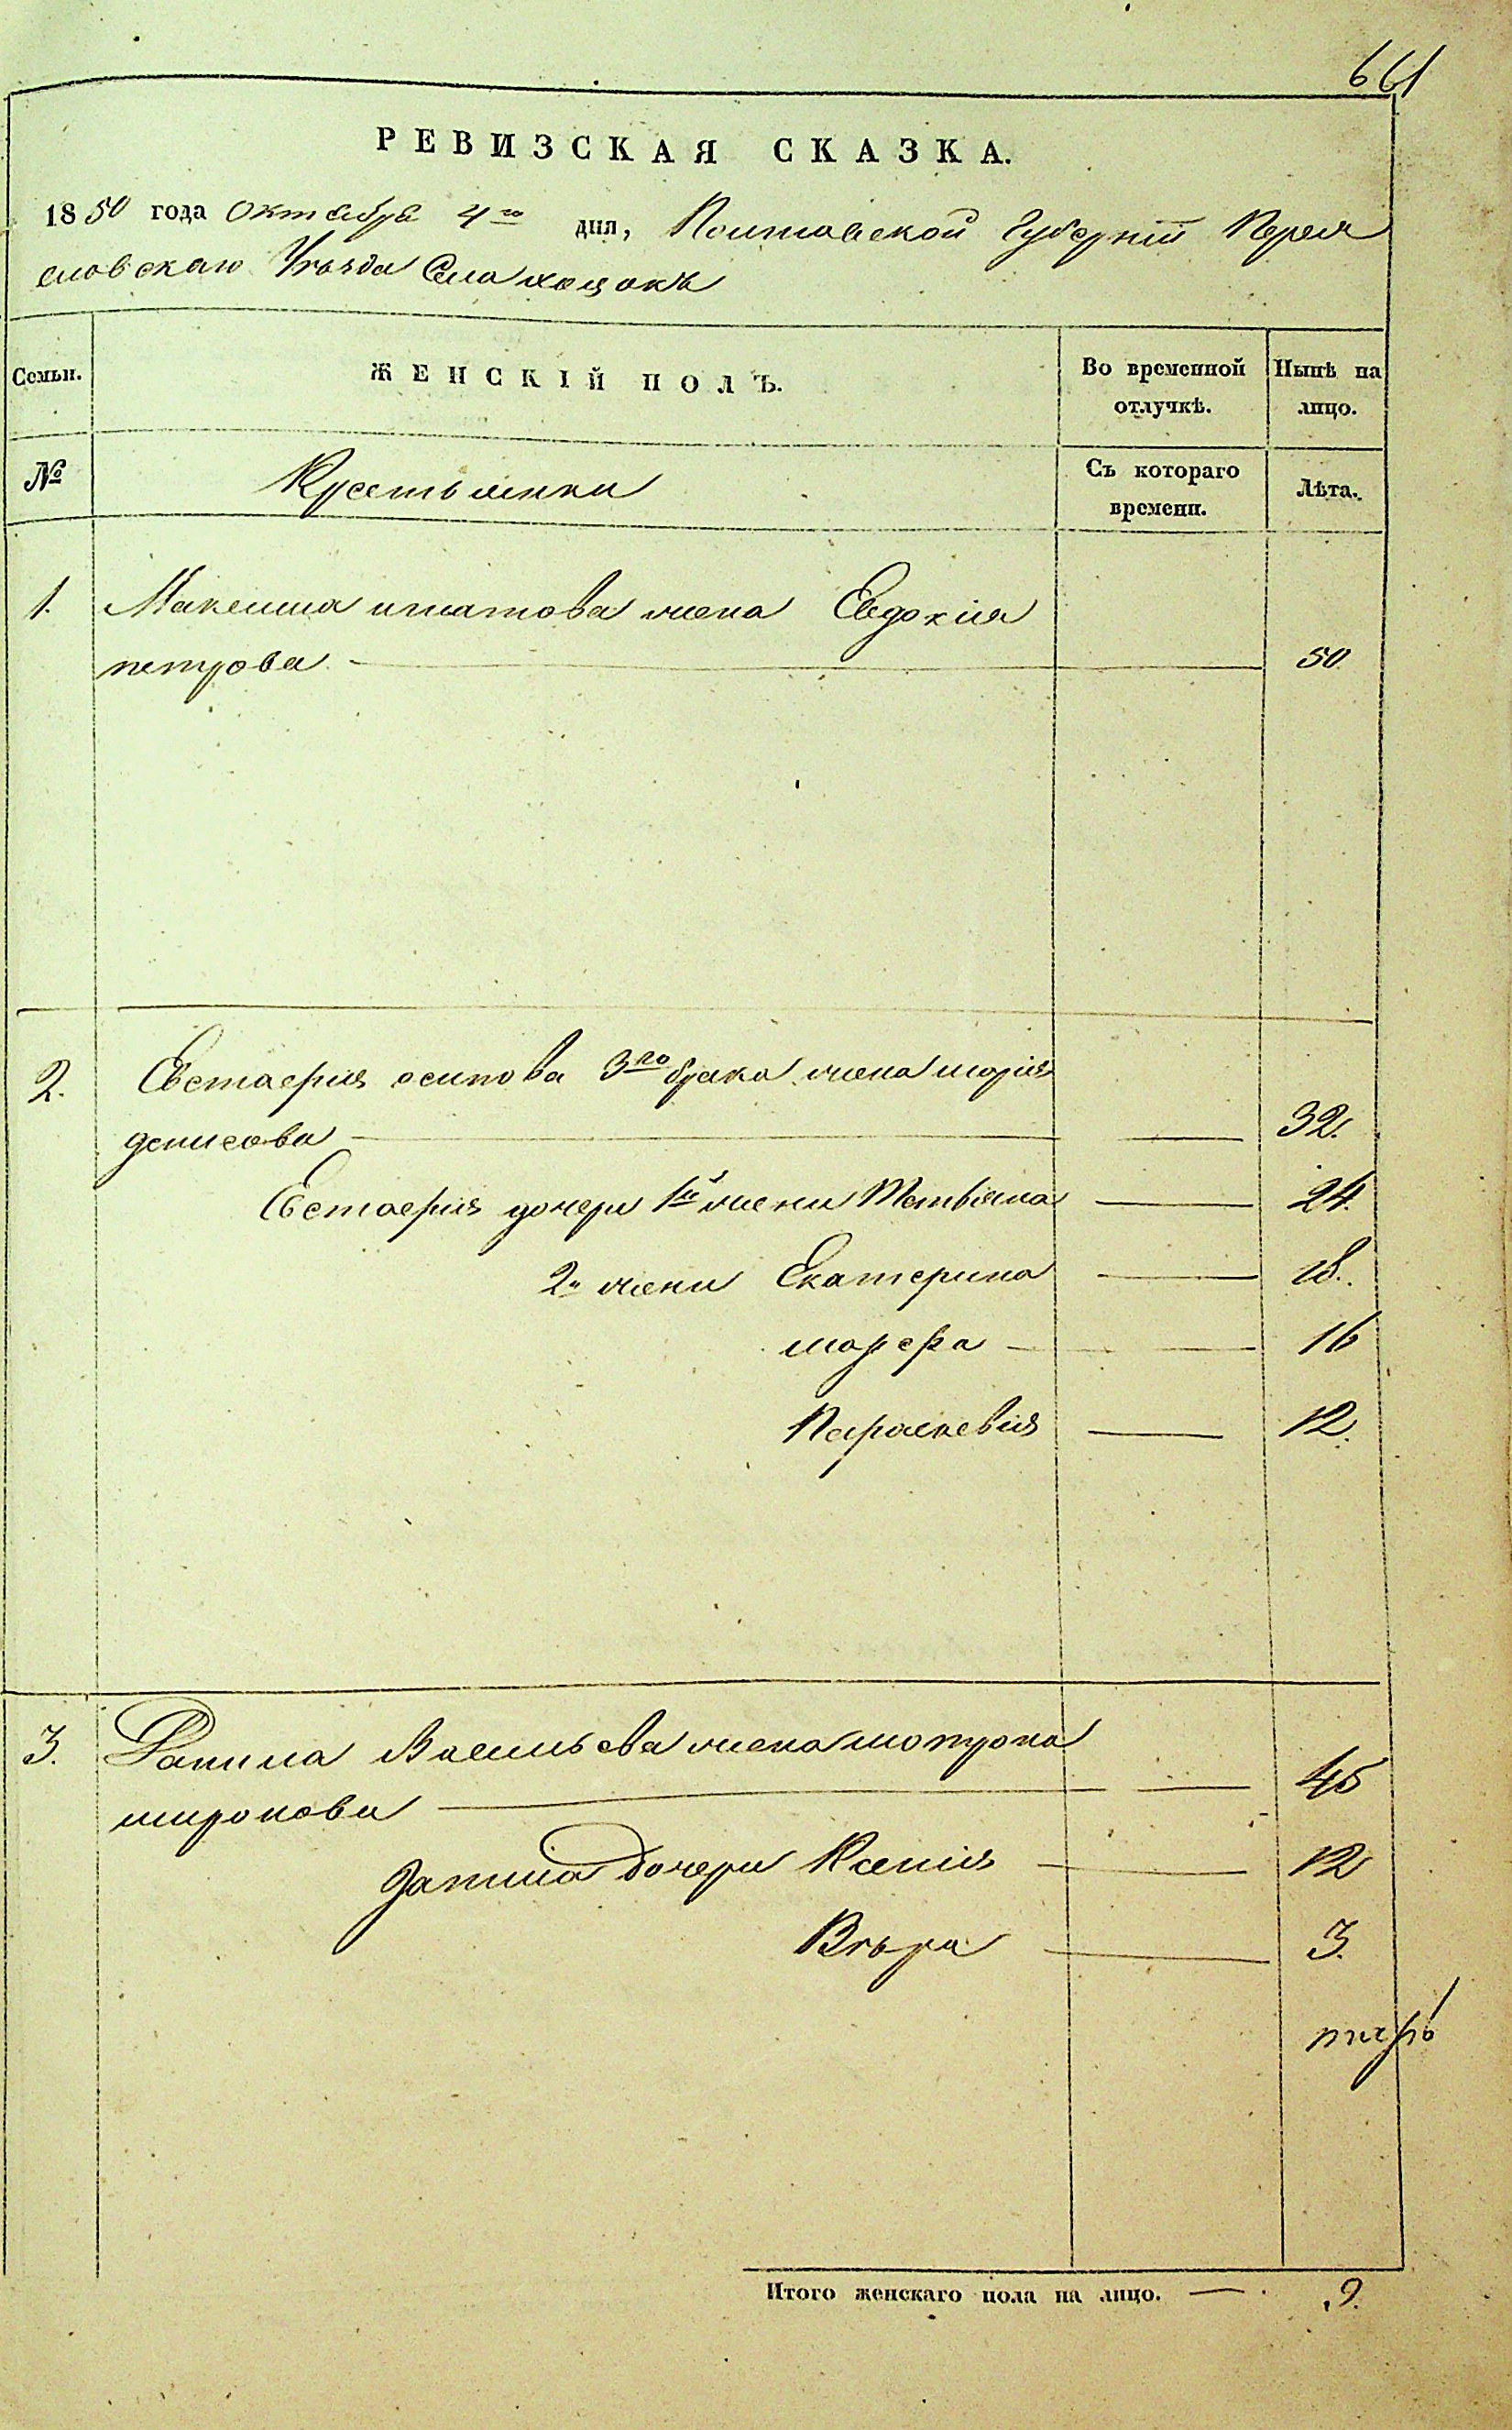 661
РЕВИЗСКАЯ СКАЗКА.
1850 года Октября 4го дня, Полтавской Губерніи Перея
словскаго Уѣзда Села хоцокъ
Семьи.
ЖЕНСКІЙ ПОЛЪ.
Во временной отлучкѣ.
Нынѣ на лицо.
№
Крестьянки
Съ котораго времени.
Лѣта.
1. Максима игнатова жена Евдокія
петрова — 50
2. Евстафія осипова 3го брака жена марія
денисова — 32.
Евстафія дочери 1й жены Татьяна — 24.
2й жены Екатерина — 18.
марфа — 16
Параскевія — 12.
3. Данила Васильева жена мотрона
миронова — 45
данила дочери Ксенія — 12
Вѣра — 3.
Итого женскаго пола на лицо. — 9.